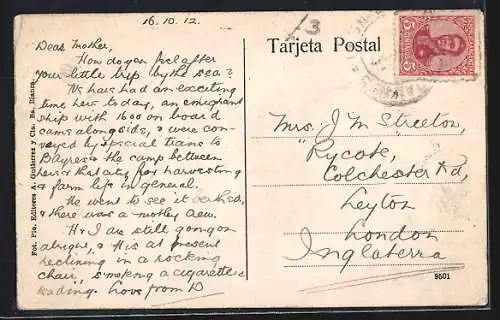 16.10.12
3
Tarjeta Postal
Dear Mother,
How do you feel after
your little trip by the sea?
We have had an exciting
time here to-day, an emigrant
ship with 1600 on board
came alongside, & were con-
veyed by special trans to
BAyres & the camp between
here & that city for harvesting
& farm life in general.
He went to see it berthed,
& there was a motley crew.
H & I are still going on
alright, & H is at present
reclining in a rocking
chair, smoking a cigarette &
reading. Love from D
Mrs. J M Streeton,
"Rycote,
Colchester Rd,
Leyton
London
Inglaterra
Fot. Pla. Editores A. Gutiérrez y Cía. Ba. Blanca.
9501
5 5